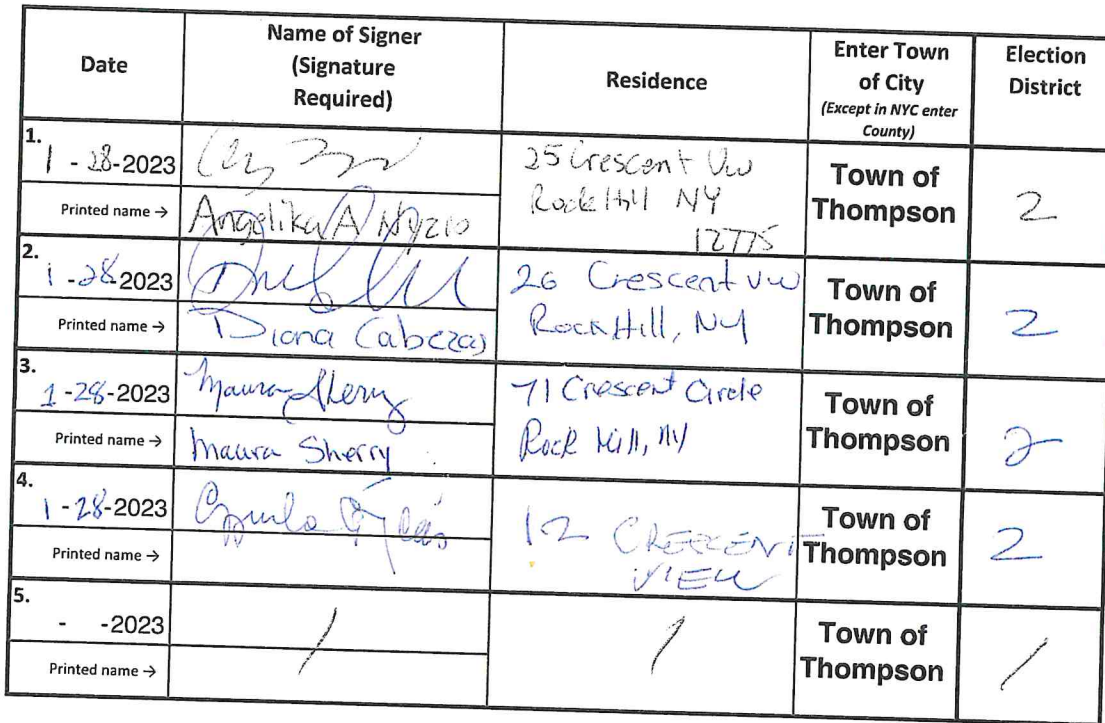 Date
Name of Signer
(Signature
Required)
Residence
Enter Town
of City
(Except in NYC enter
County)
Election
District
1.
1 - 28-2023
25 Crescent Vw
Rock Hill NY
12775
Town of
Thompson
2
Printed name →
Angelika A Nyzio
2.
1 -28-2023
26 Crescent vw
Rock Hill, NY
Town of
Thompson
2
Printed name →
Diana Cabezas
3.
1 -28-2023
Maura Sherry
71 Crescent Circle
Rock Hill, NY
Town of
Thompson
2
Printed name →
Maura Sherry
4.
1 -28-2023
12 CRESCENT
VIEW
Town of
Thompson
2
Printed name →
5.
- -2023
/
/
Town of
Thompson
/
Printed name →